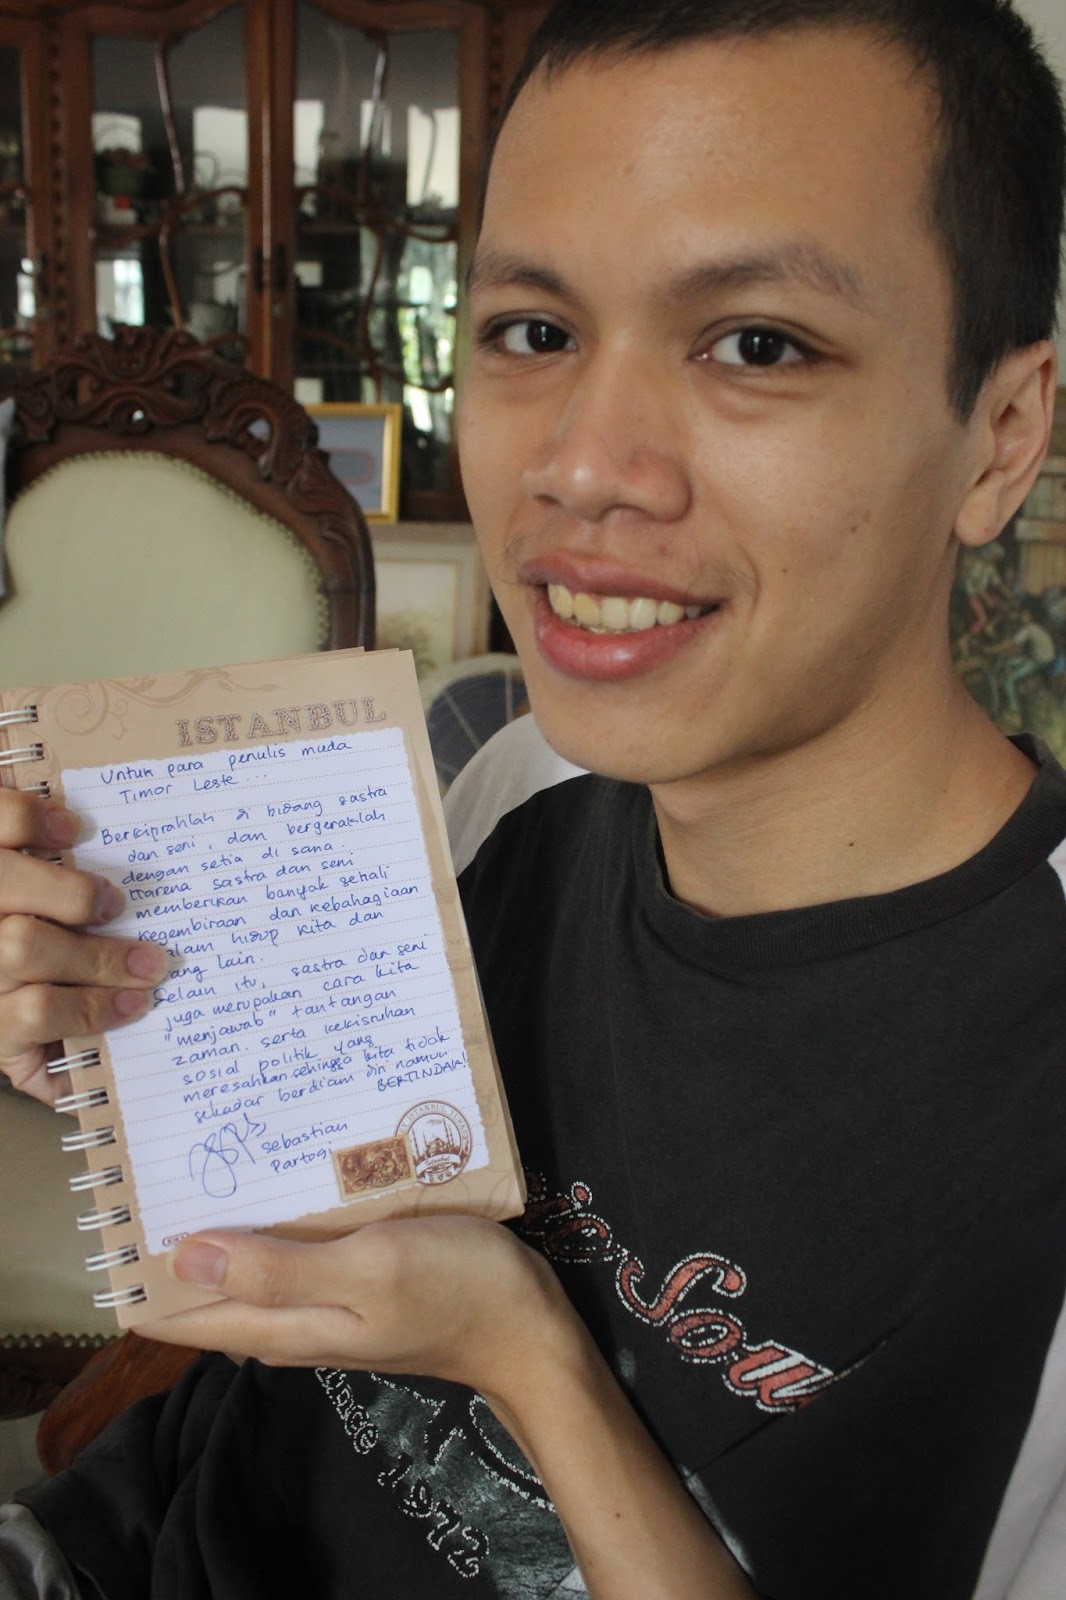 ISTANBUL
Untuk para penulis muda
Timor Leste...
Berkiprahlah di bidang sastra
dan seni, dan bergeraklah
dengan setia di sana.
Karena sastra dan seni
memberikan banyak sekali
kegembiraan dan kebahagiaan
dalam hidup kita dan
orang lain.
Selain itu, sastra dan seni
juga merupakan cara kita
"menjawab" tantangan
zaman. serta kekisruhan
sosial politik yang
meresahkan.sehingga kita tidak
sekadar berdiam diri namun
BERTINDAK!
Sebastian
Partogi
Istanbul
Sou
Since 1972